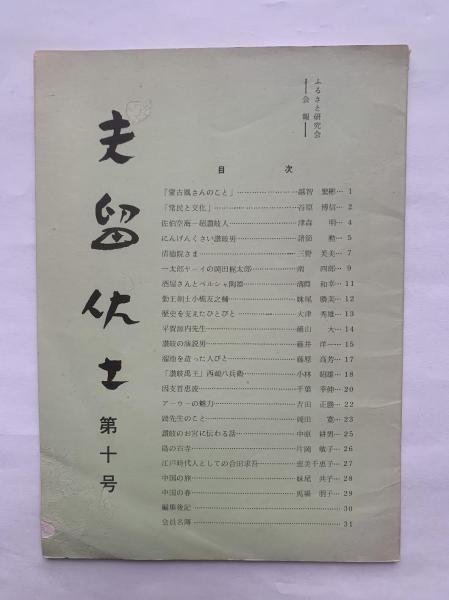 夫留佐土
第十号
ふるさと研究会
―会報―
目次
「蒙古風さんのこと」……越智 繁彬…1
「常民と文化」……谷原 博信…2
佐伯空海―超讃岐人……津森 明…4
にんげんくさい讃岐男……諸節 勲…5
清徳院さま……三野 美美…7
一太郎ヤーイの岡田梶太郎……南 四郎…9
酒屋さんとペルシャ陶器……溝淵 和幸…11
勤王剣士小橋友之輔……妹尾 勝美…12
歴史を支えたひとびと……大津 秀雄…13
平賀源内先生……細山 大…14
讃岐の演説男……藤井 洋一…15
溜池を造った人びと……藤原 高芳…17
「讃岐禹王」西嶋八兵衛……小林 昭雄…18
因支首恵波……千葉 幸伸…20
アーウーの魅力……吉田 正勝…22
先生のこと……岡田 寛…23
讃岐のお宮に伝わる話……中原 耕男…25
島の古寺……片岡 敬子…26
江戸時代人としての合田求吾……恵美千恵子…27
中国の旅……妹尾 共子…28
中国の春……馬場 朋子…29
編集後記……30
会員名簿……31